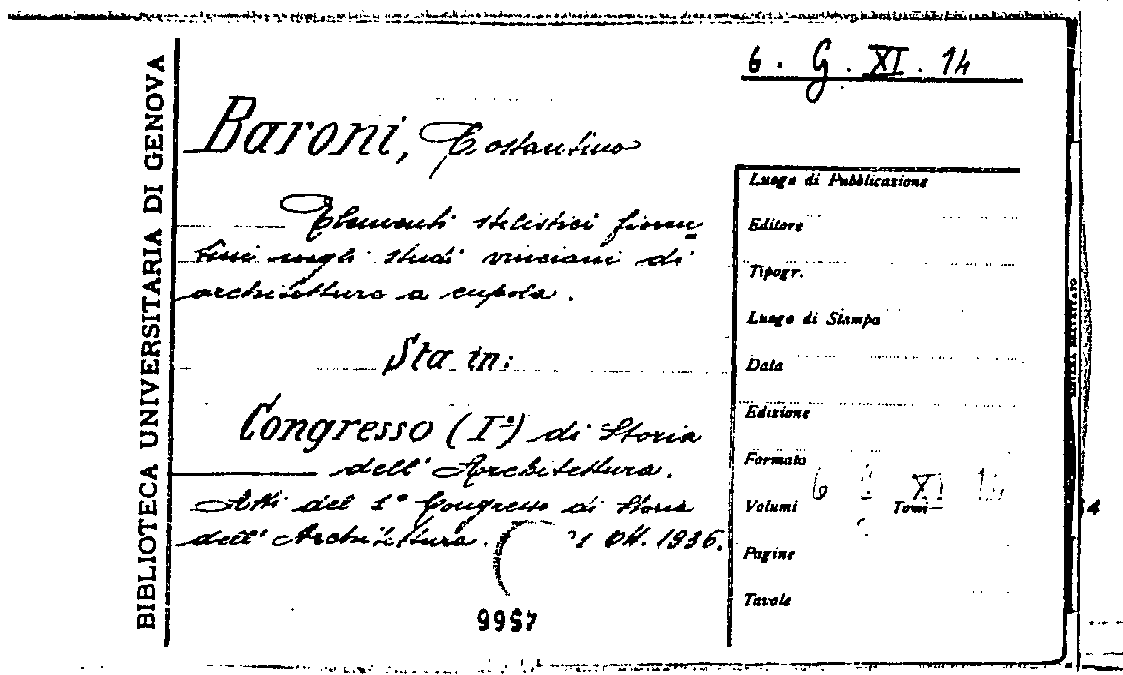 BIBLIOTECA UNIVERSITARIA DI GENOVA
6. G. XI. 14
Baroni, Costantino
Elementi stilistici fioren-
tini negli studi vinciani di
architettura a cupola.
Sta in:
Congresso (Iº) di Storia
dell'Architettura.
Atti del 1º Congresso di Storia
dell'Architettura. 1 Ott. 1936.
Luogo di Pubblicazione
Editore
Tipogr.
Luogo di Stampa
Data
Edizione
Formato
Volumi 6 XI 14 Tomi
Pagine
Tavole